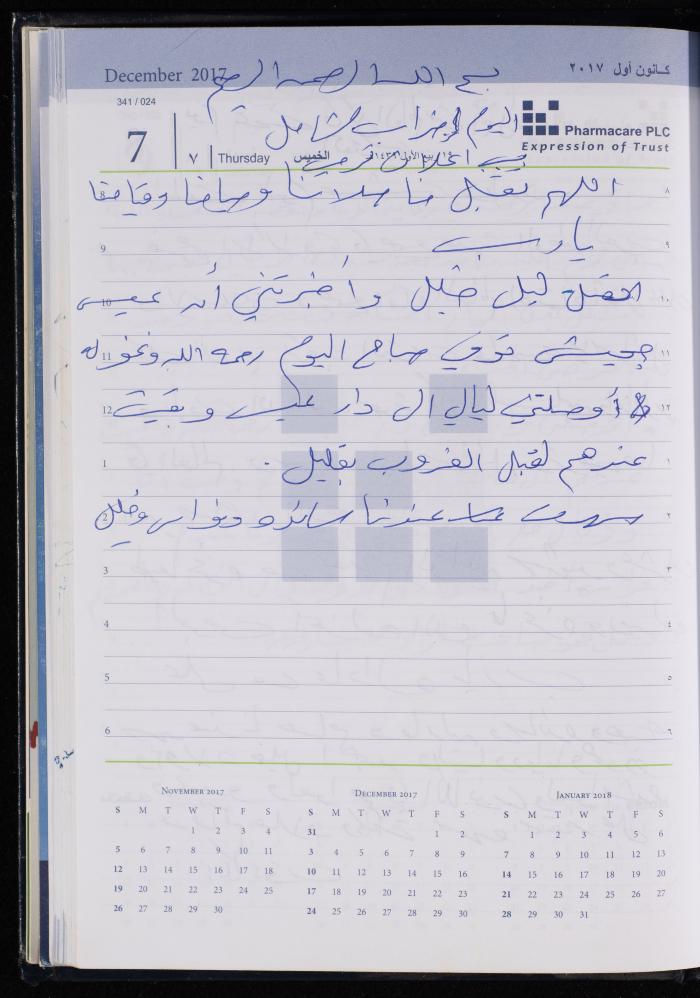 December 2017
كانون أول ٢٠١٧
بسم الله الرحمن الرحيم
341 / 024
7
٧
Thursday
الخميس
Pharmacare PLC
Expression of Trust
اليوم إضراب شامل
بسبب اعلان ترمب
اللهم تقبل منا صلاتنا وصيامنا وقيامنا
٨
يا رب
9
٩
اتصلت ليل خليل وأخبرتني أن عيسى
10
١٠
توفي صباح اليوم رحمه الله وغفر له
11
١١
أوصلتني ليالي الى دار عيسى وبقيت
12
١٢
عندهم لقبل الغروب بقليل .
1
١
سهرت عندنا سائده ونواس وخليل
2
٢
3
٣
4
٤
5
٥
6
٦
November 2017
S M T W T F S
1 2 3 4
5 6 7 8 9 10 11
12 13 14 15 16 17 18
19 20 21 22 23 24 25
26 27 28 29 30
December 2017
S M T W T F S
31 1 2
3 4 5 6 7 8 9
10 11 12 13 14 15 16
17 18 19 20 21 22 23
24 25 26 27 28 29 30
January 2018
S M T W T F S
1 2 3 4 5 6
7 8 9 10 11 12 13
14 15 16 17 18 19 20
21 22 23 24 25 26 27
28 29 30 31